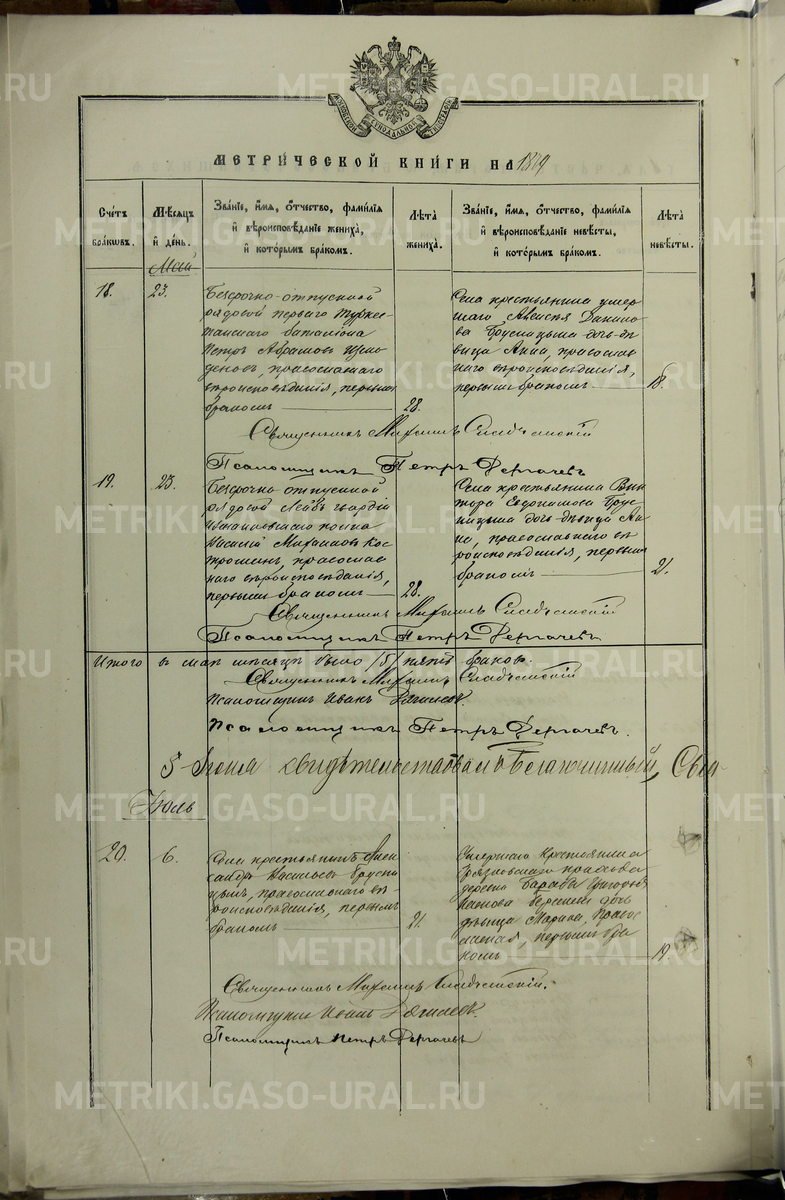 МЕТРИЧЕСКОЙ КНИГИ НА 1889
Счетъ браковъ.
Мѣсяцъ и день.
Званіе, имя, отчество, фамилія и вѣроисповѣданіе жениха, и которымъ бракомъ.
Лѣта жениха.
Званіе, имя, отчество, фамилія и вѣроисповѣданіе невѣсты, и которымъ бракомъ.
Лѣта невѣсты.
Май
18.
23.
Безсрочно-отпускной
рядовой перваго Турке-
станскаго баталіона
Петръ Абрамовъ
православнаго
вѣроисповѣданія, первымъ
бракомъ
28.
Села крестьянина умер-
шаго Алексѣя Данило-
ва Брусницына дочь дѣ-
вица Анна, православ-
наго вѣроисповѣданія,
первымъ бракомъ
18.
Священникъ Михаилъ
Псаломщикъ Петръ Дергачевъ
19.
23.
Безсрочно-отпускной
рядовой Лейбъ-гвардіи
Измаиловскаго полка
Василій Михаиловъ Кос-
троминъ, православ-
наго вѣроисповѣданія,
первымъ бракомъ
28.
Села крестьянина Вик-
тора Евдокимова Брус-
ницына дочь дѣвица Ан-
на, православнаго вѣ-
роисповѣданія, первымъ
бракомъ
21.
Священникъ Михаилъ
Псаломщикъ Петръ Дергачевъ
Итого въ маѣ мѣсяцѣ было /5/ пять браковъ.
Священникъ Михаилъ
Псаломщикъ Иванъ
Псаломщикъ Петръ Дергачевъ.
5 Іюня свидѣтельствовалъ Благочинный, Свящ-
Іюль
20.
6.
Села крестьянинъ Алек-
сандръ Васильевъ Брусни-
цынъ, православнаго вѣ-
роисповѣданія, первымъ
бракомъ
21.
Умершаго крестьянина
деревни Григорія
дочь
дѣвица Марина, право-
славная, первымъ бра-
комъ
19.
Священникъ Михаилъ
Псаломщикъ Иванъ
Псаломщикъ Петръ Дергачевъ
METRIKI.GASO-URAL.RU